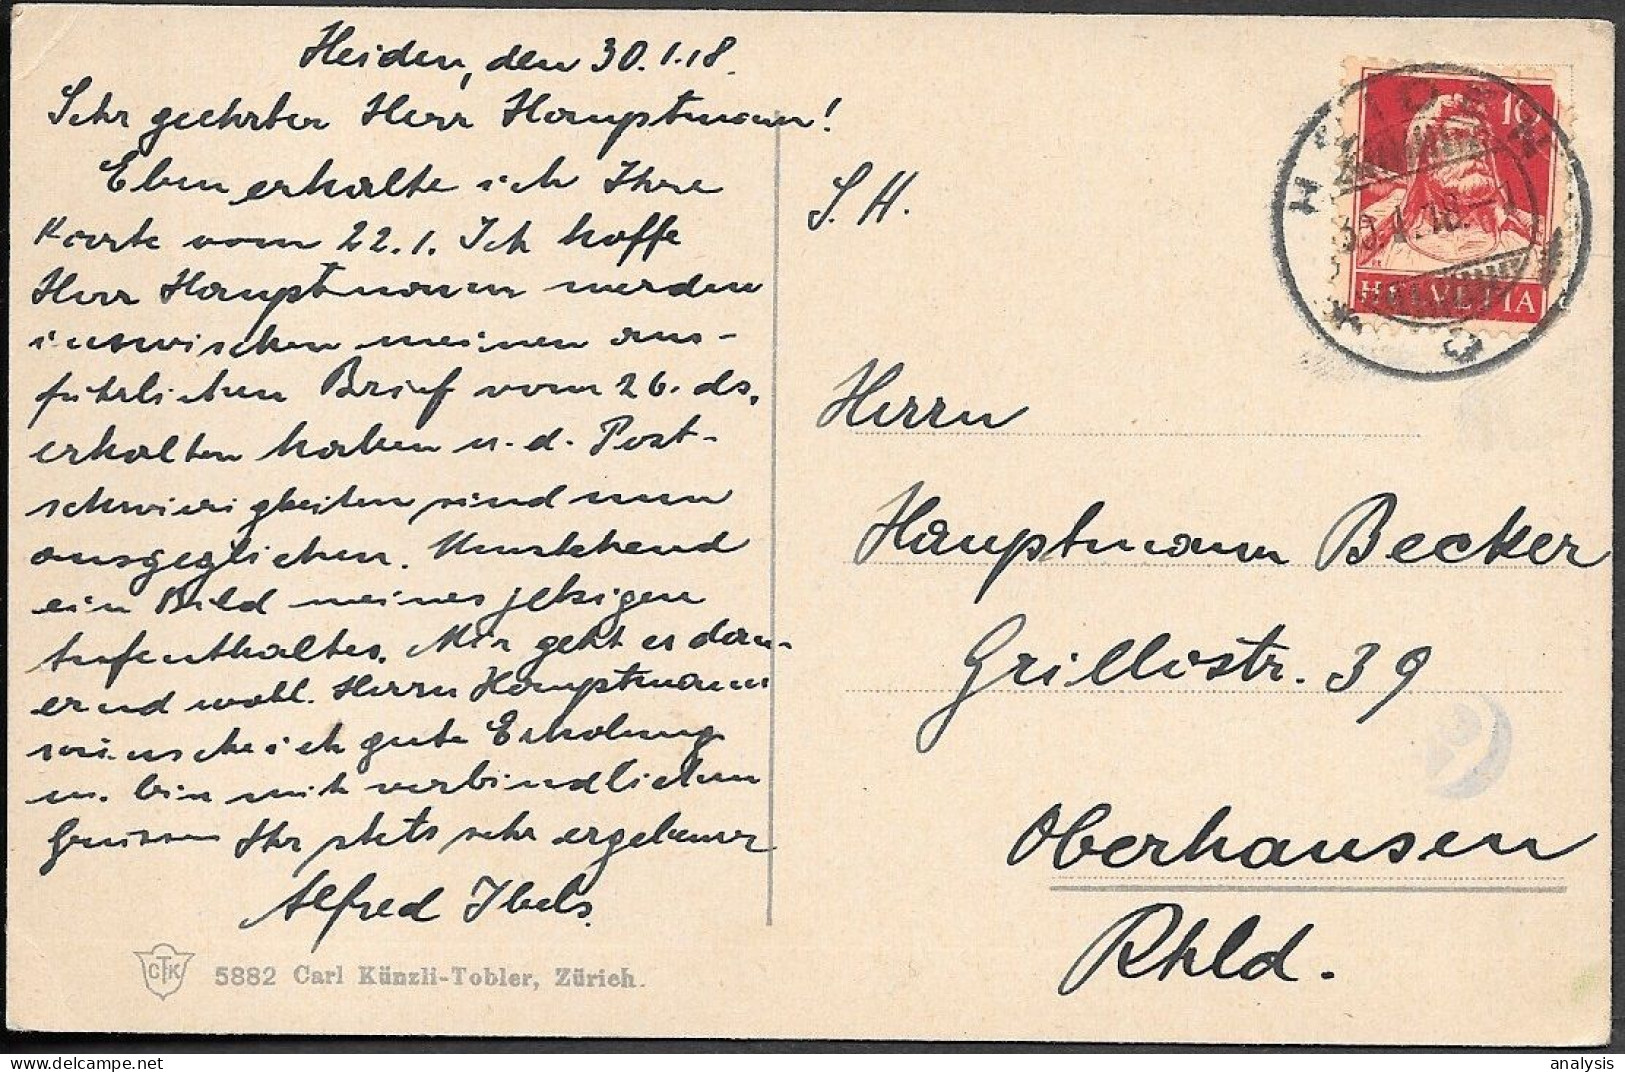 Heiden, den 30.1.18.
Sehr geehrter Herr Hauptmann!
Eben erhalte ich Ihre
Karte vom 22.1. Ich hoffe
Herr Hauptmann werden
inzwischen meinen aus-
führlichen Brief vom 26. ds.
erhalten haben u. d. Post-
schwierigkeiten sind nun
ausgeglichen. Umstehend
ein Bild meines jetzigen
Aufenthaltes. Mir geht es dau-
ernd wohl. Herrn Hauptmann
wünsche ich gute Erholung
u. bin mit verbindlichen
Grüssen Ihr stets sehr ergebener
Alfred Ibels.
CTK
5882 Carl Künzli-Tobler, Zürich.
S. H.
Herrn
Hauptmann Becker
Grillostr. 39
Oberhausen
Rhld.
10
HELVETIA
HEIDEN
30.1.18.
analysis
delcampe.net